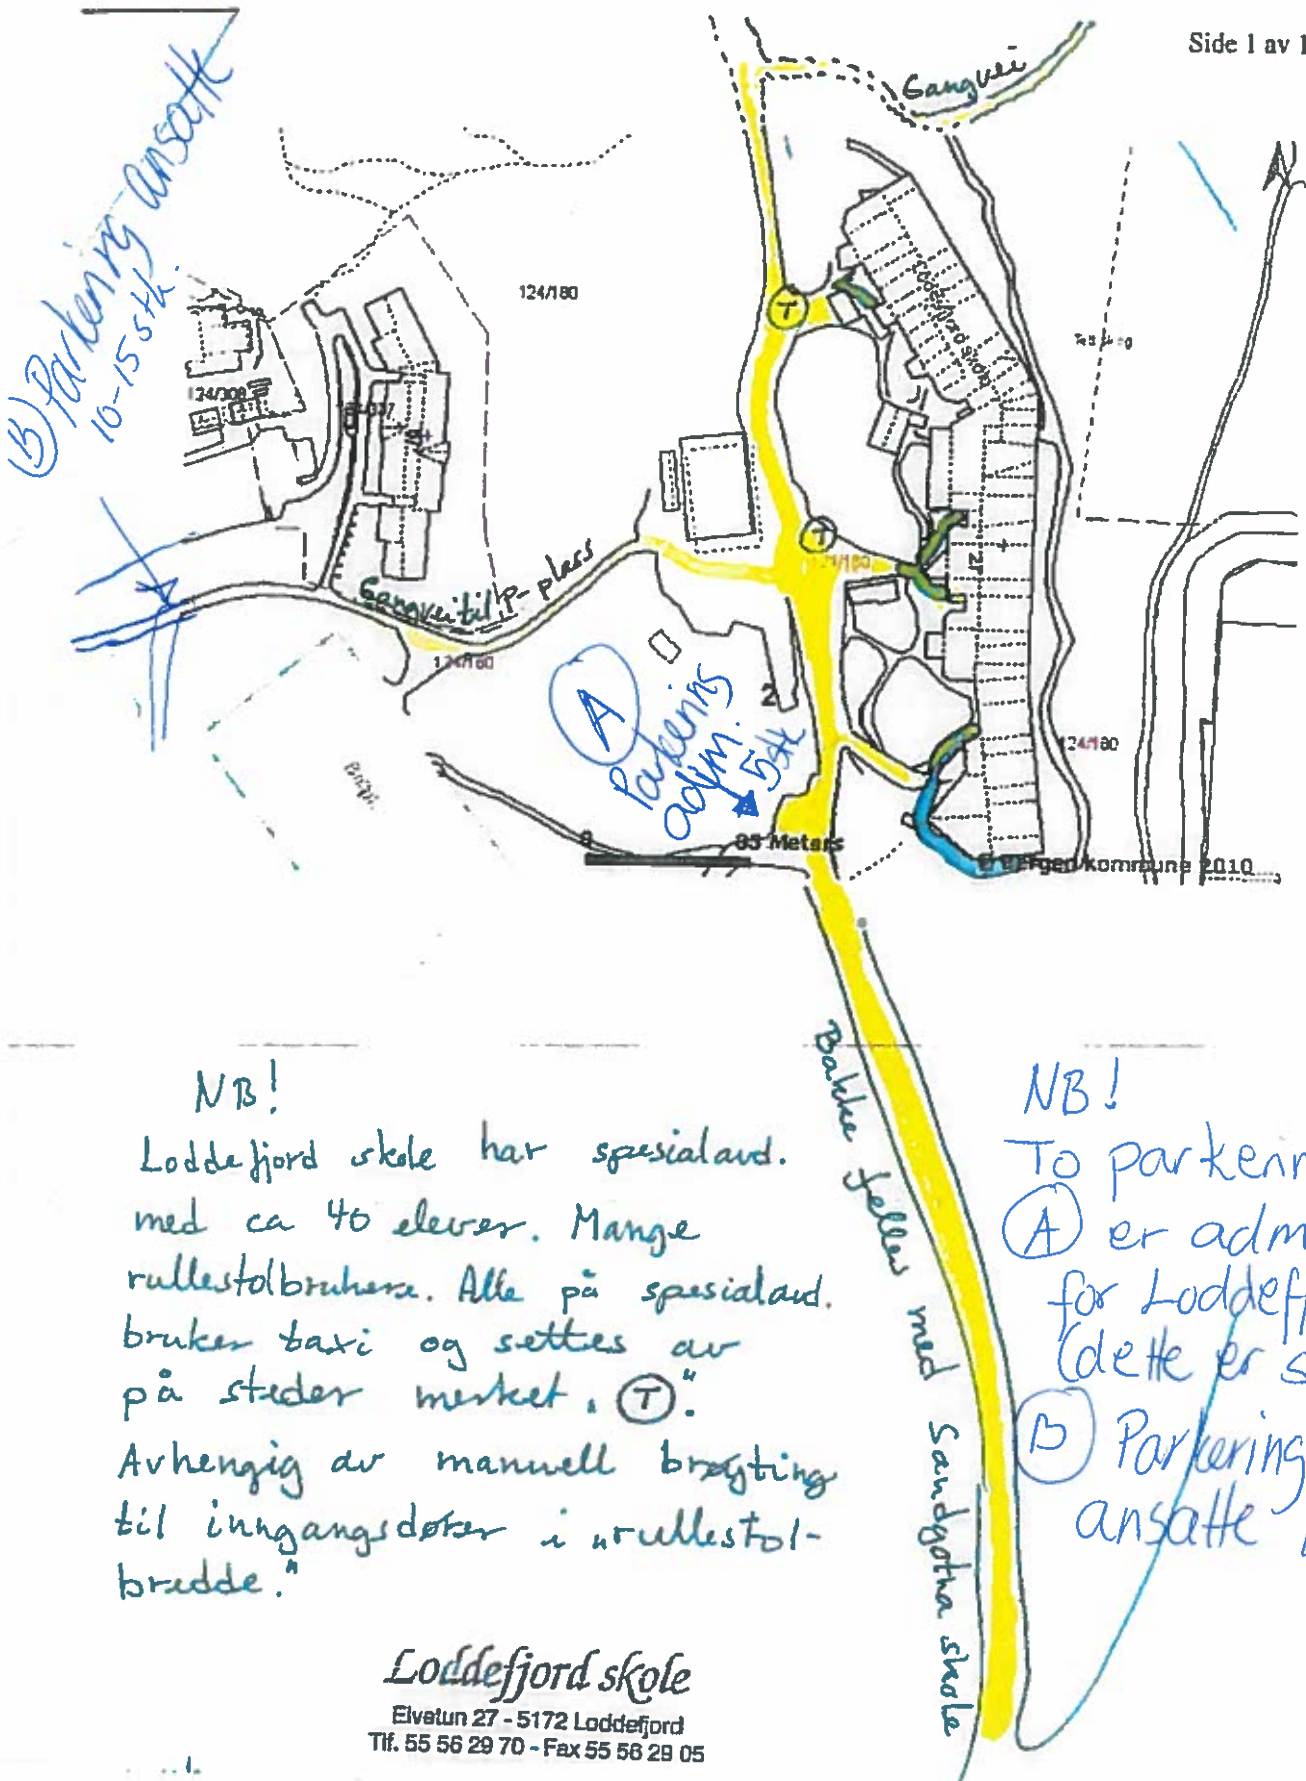 Side 1 av 1
Gangvei
(B) Parkering ansatte
10-15 stk.
124/180
Loddefjord skole
T
124/308
T
124/180
27
Gangvei til P-plass
124/180
A
Parkering
adm.
5 stk
2
124/180
0
85 Meters
© Bergen kommune 2010
Bakke felles med Sandgotna skole
NB!
Loddefjord skole har spesialavd.
med ca 40 elever. Mange
rullestolbrukere. Alle på spesialavd.
bruker taxi og settes av
på steder merket „(T)“.
Avhengig av manuell brøyting
til inngangsdører i „rullestol-
bredde.“
NB!
To parkerin
(A) er adm
for Loddefj
(dette er s
(B) Parkering
ansatte
Loddefjord skole
Elvetun 27 - 5172 Loddefjord
Tlf. 55 56 29 70 - Fax 55 56 29 05